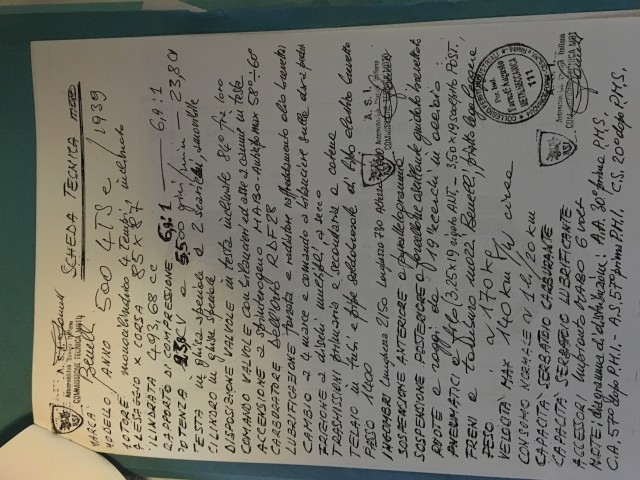 SCHEDA TECNICA MOTO
MARCA Benelli
MODELLO / ANNO 500 4TSe / 1939
MOTORE monocilindrico 4 Tempi, inclinato
ALESAGGIO x CORSA 85 x 87
CILINDRATA 493,68 cc
RAPPORTO DI COMPRESSIONE 6,4:1 6,4:1
POTENZA 5500 giri/min — 23,8 CV
TESTA in ghisa speciale a 2 scarichi, smontabile
CILINDRO in ghisa speciale
DISPOSIZIONE VALVOLE in testa inclinate 84° fra loro
COMANDO VALVOLE con bilancieri ad aste e camme in testa
ACCENSIONE a spinterogeno MABO
CARBURATORE Dell'Orto RDF28
LUBRIFICAZIONE forzata e radiatore raffreddamento olio
CAMBIO a 4 marce e comando a bilanciere sulla dx a pedale
FRIZIONE a dischi multipli a secco
TRASMISSIONI primaria e secondaria a catena
TELAIO in tubi, e forze di tipo elastico
PASSO 1400
INGOMBRI Lunghezza 2150 Larghezza 730 Altezza
SOSPENSIONE ANTERIORE a parallelogramma
SOSPENSIONE POSTERIORE
RUOTE a raggi da 19" cerchi in acciaio
PNEUMATICI 3,25x19 ANT. - 3,50x19 POST.
FRENI a tamburo mozzi Benelli, lega leggera
PESO ~170 kg
VELOCITÀ MAX 140 km/h circa
CONSUMO NORMALE 1 l. / 20 km
CAPACITÀ SERBATOIO CARBURANTE
CAPACITÀ SERBATOIO LUBRIFICANTE
ACCESSORI Impianto MABO 6 volt
NOTE: diagramma di distribuzione: A.A. 30° prima P.M.S.
C.A. 570 dopo P.M.I. - A.S. 57° prima P.M.I. C.S. 20° dopo P.M.S.
A.S.I.
COMMISSIONE TECNICA MOTO